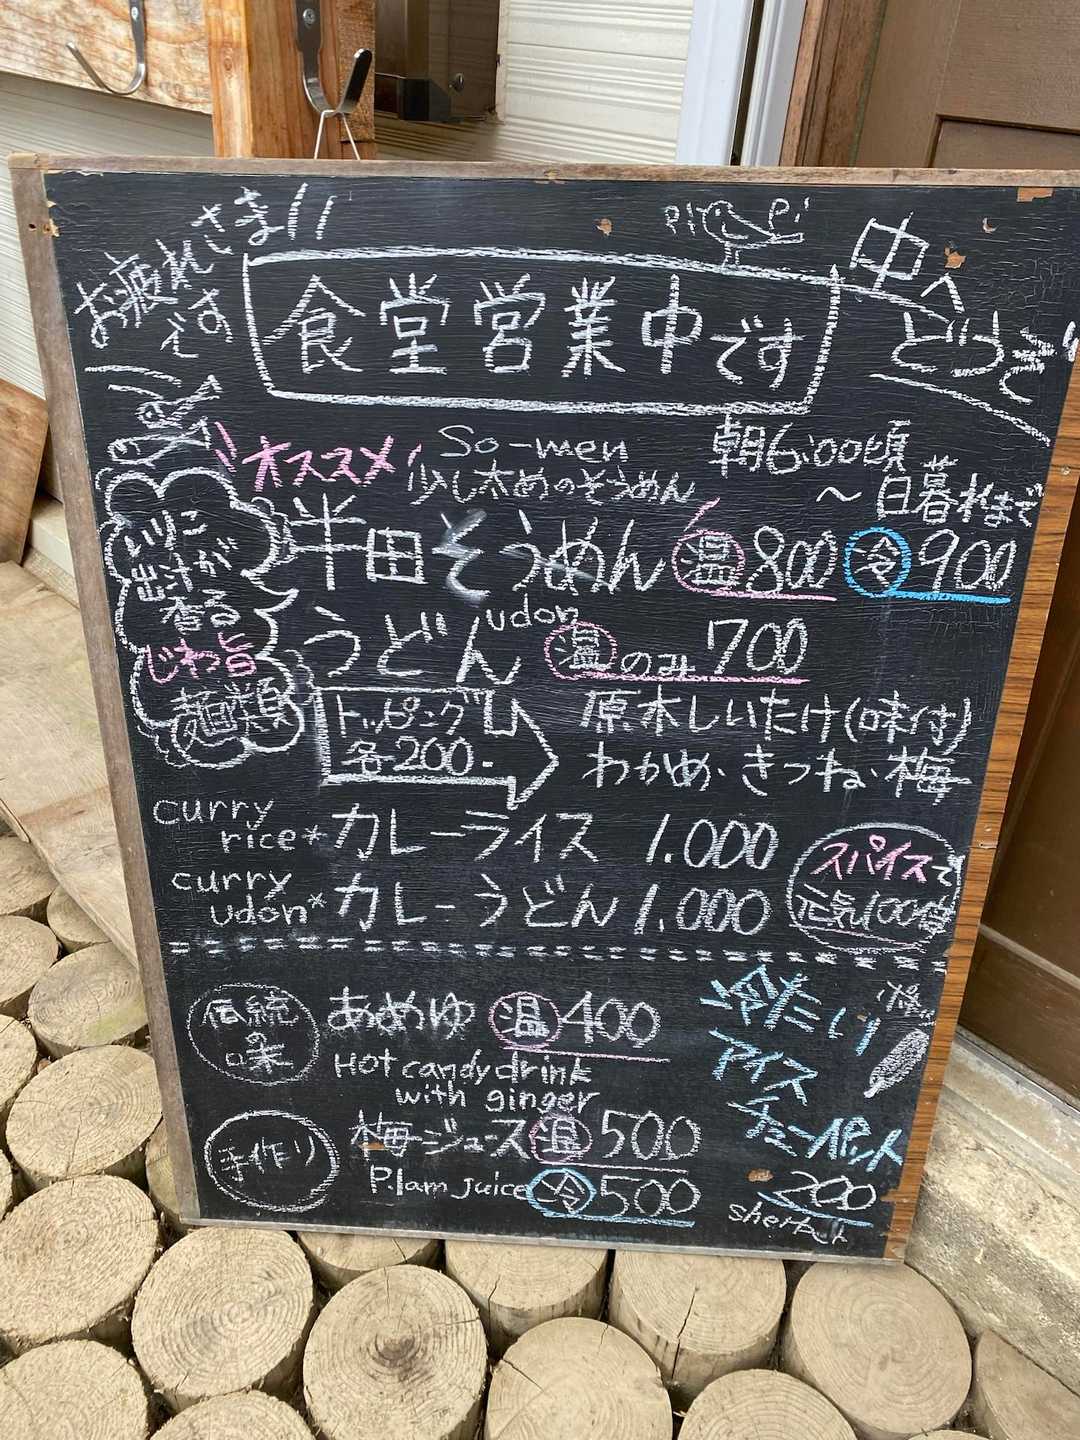 お疲れさま!!
です
食堂営業中です
Pi Pi
中へ
どうぞ
オススメ
So-men
少し太めのそうめん
朝6:00頃
〜日暮れまで
半田そうめん 温800 冷900
いりこ
出汁が
香る
じわ旨
麺類
うどん udon 温のみ700
トッピング
各200.-
原木しいたけ(味付)
わかめ・きつね・梅
curry
rice* カレーライス 1.000
curry
udon* カレーうどん 1.000
スパイスで
元気100倍
伝統
の
味
あめゆ 温400
Hot candy drink
with ginger
手作り
梅ジュース 温500
P.lam juice 冷500
冷たい
アイス
チューペット
200